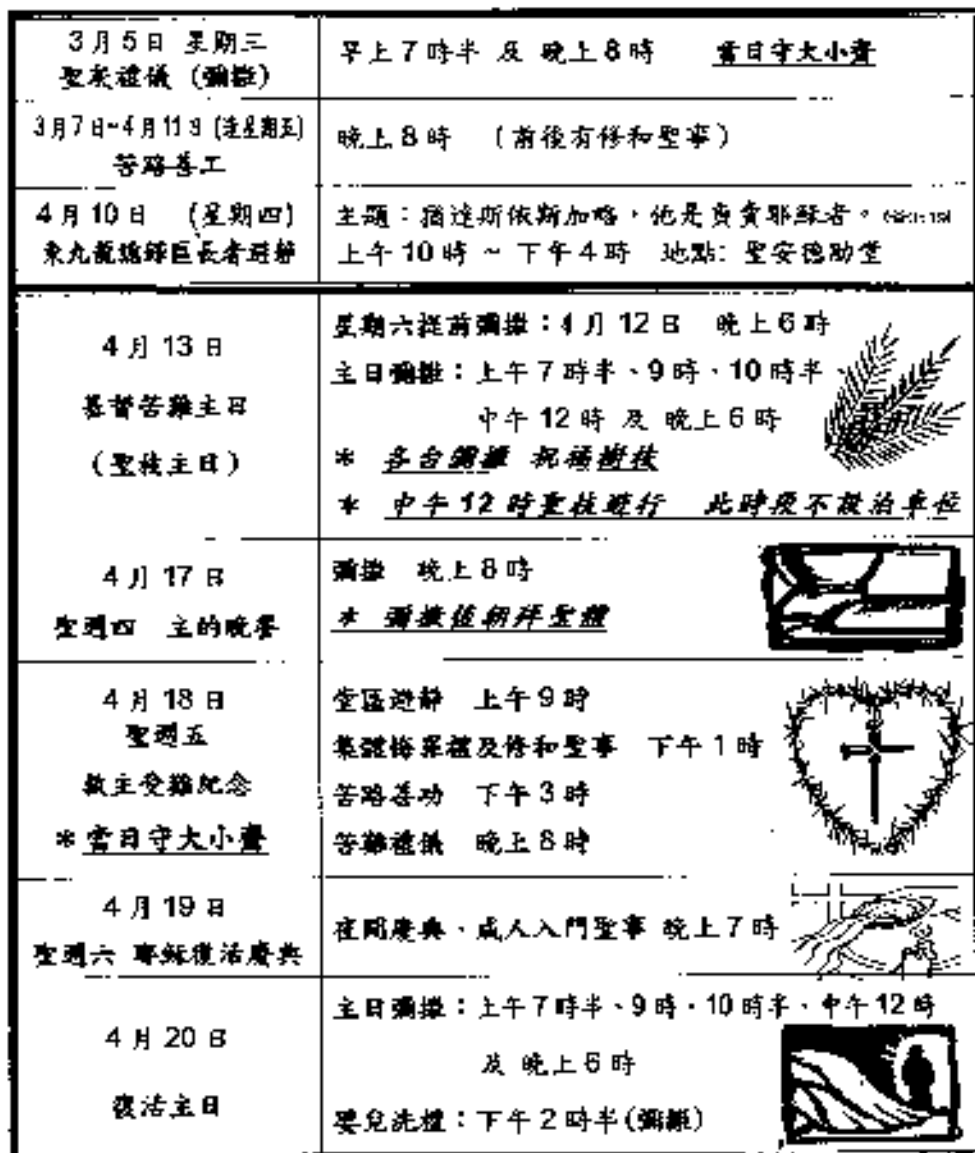 3月5日 星期三
聖灰禮儀 (彌撒)
早上7時半 及 晚上8時 當日守大小齋
3月7日~4月11日 (逢星期五)
苦路善工
晚上8時 (前後有修和聖事)
4月10日 (星期四)
東九龍總鐸區長者避靜
主題：猶達斯依斯加略，他是負賣耶穌者。
上午10時 ~ 下午4時 地點: 聖安德肋堂
4月13日
基督苦難主日
(聖枝主日)
星期六提前彌撒：4月12日 晚上6時
主日彌撒：上午7時半、9時、10時半、
中午12時 及 晚上6時
* 各台彌撒 祝福樹枝
* 中午12時聖枝遊行 此時段不設泊車位
4月17日
聖週四 主的晚餐
彌撒 晚上8時
* 彌撒後朝拜聖體
4月18日
聖週五
救主受難紀念
*當日守大小齋
堂區避靜 上午9時
集體悔罪禮及修和聖事 下午1時
苦路善功 下午3時
苦難禮儀 晚上8時
4月19日
聖週六 耶穌復活慶典
夜間慶典、成人入門聖事 晚上7時
4月20日
復活主日
主日彌撒：上午7時半、9時、10時半、中午12時
及 晚上6時
嬰兒洗禮：下午2時半(彌撒)